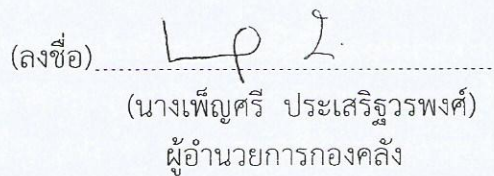 (ลงชื่อ)
(นางเพ็ญศรี ประเสริฐวรพงศ์)
ผู้อำนวยการกองคลัง